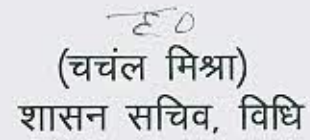 (चचंल मिश्रा)
शासन सचिव, विधि